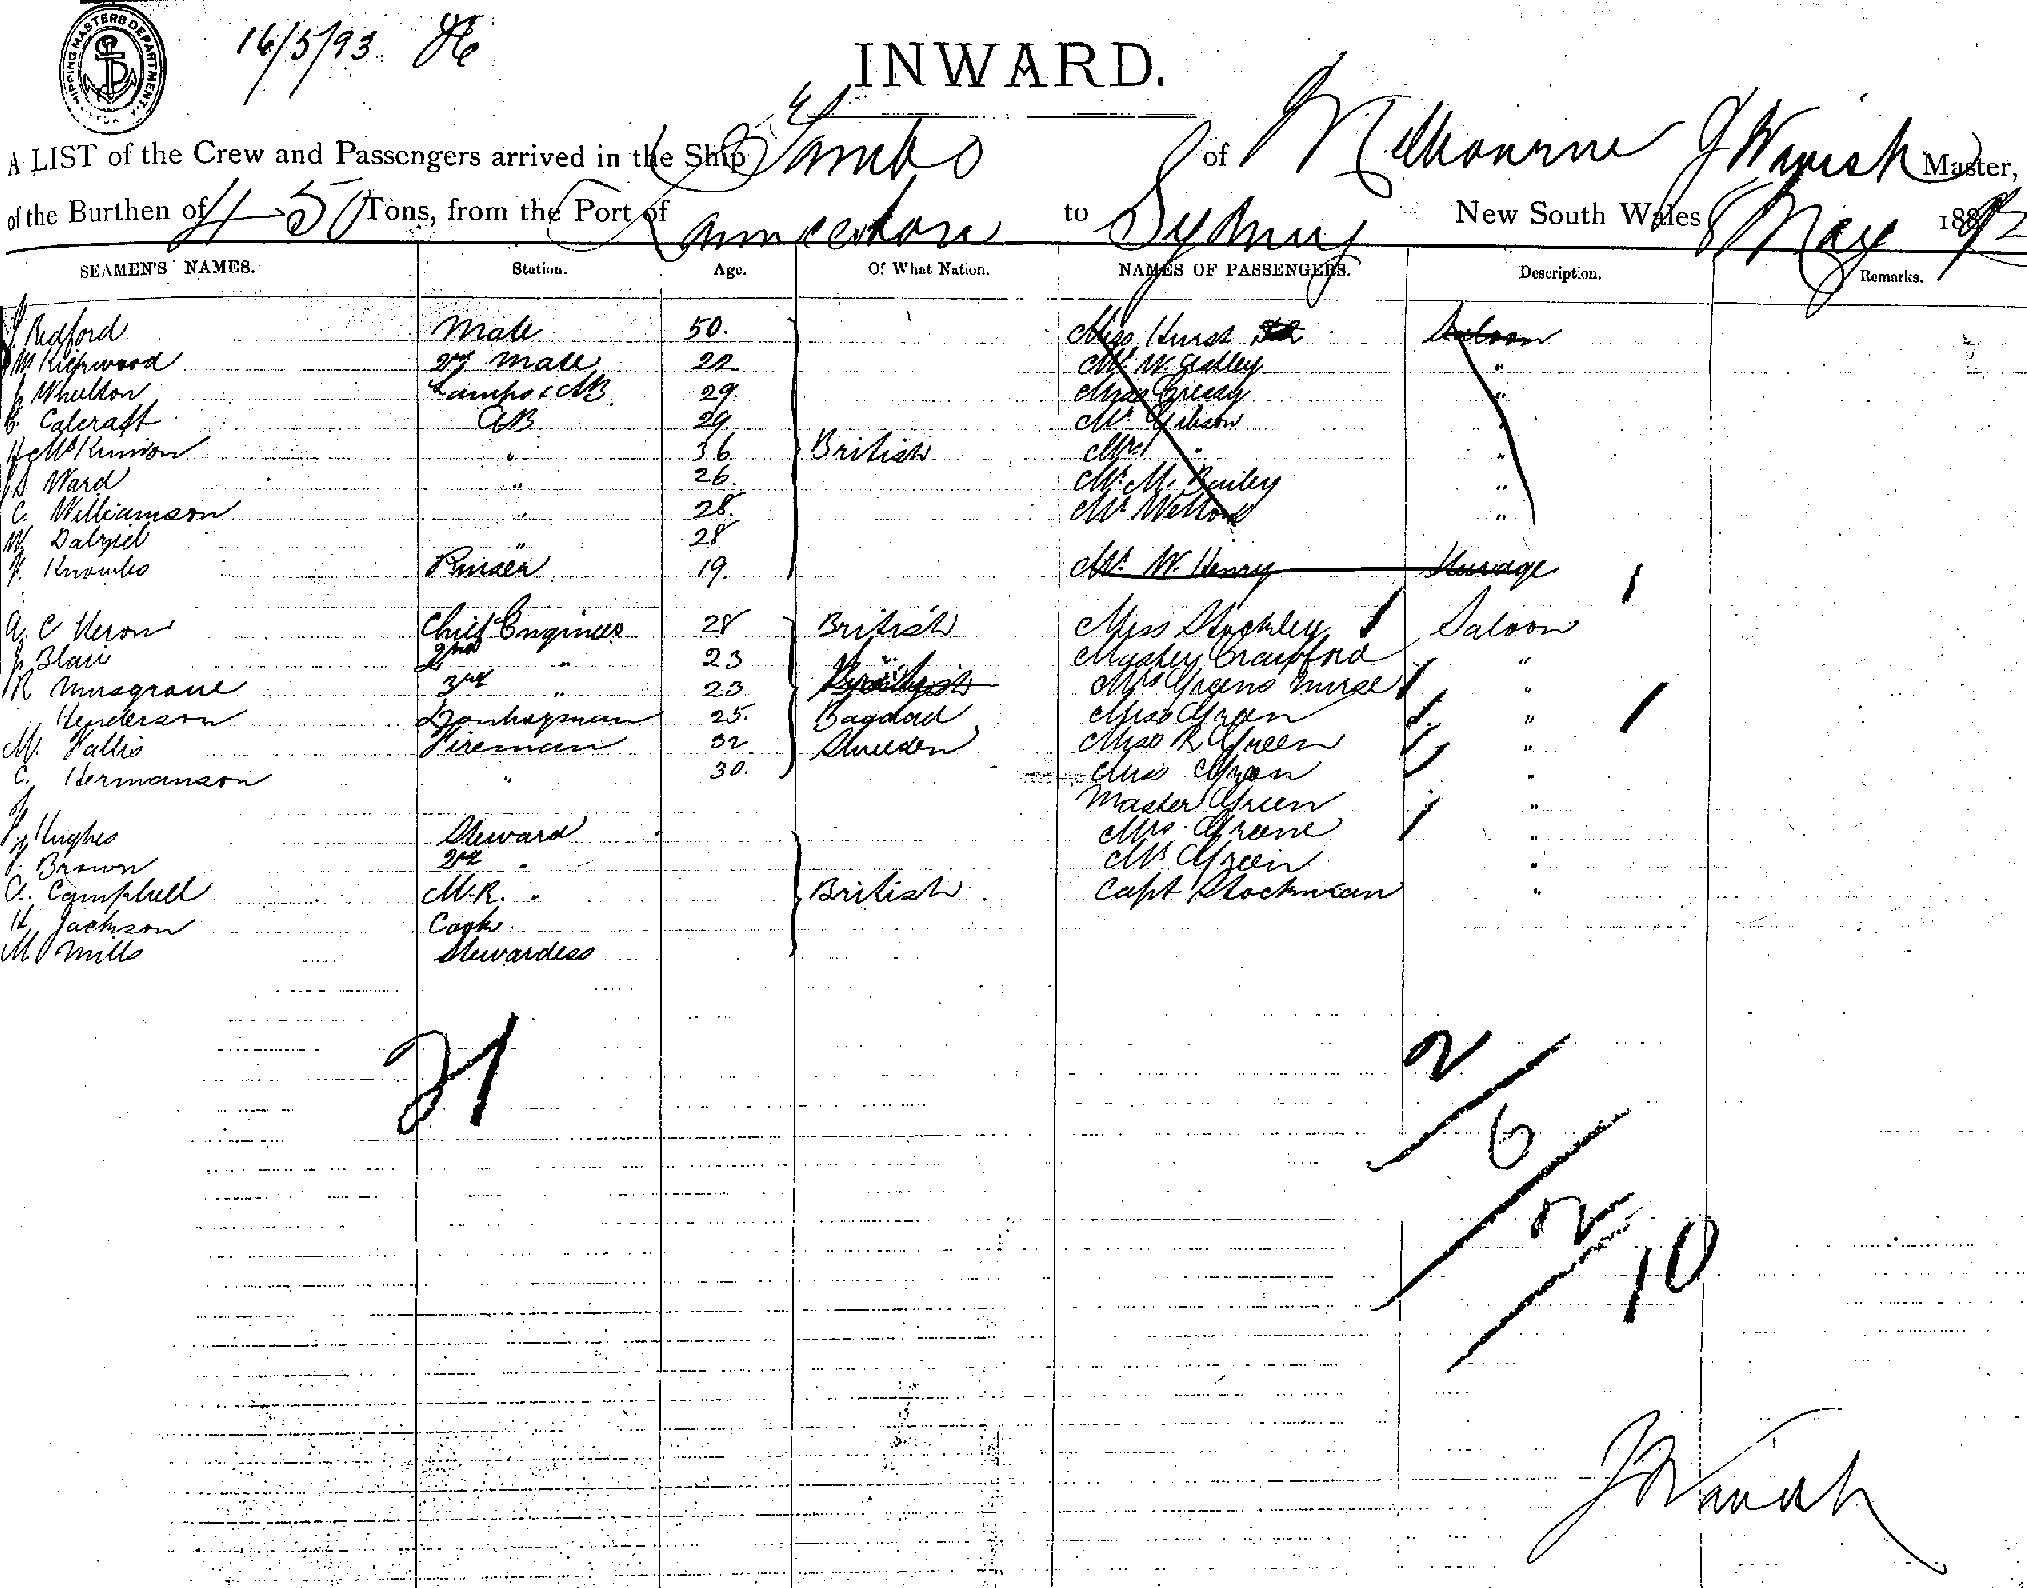 SHIPPING MASTERS DEPARTMENT
16/5/93
INWARD.
A LIST of the Crew and Passengers arrived in the Ship Tambo of Melbourne J Wavish Master,
of the Burthen of 450 Tons, from the Port of Launceston to Sydney New South Wales 8 May 1893
SEAMEN'S NAMES. Station. Age. Of What Nation. NAMES OF PASSENGERS. Description. Remarks.
J Redford Mate 50. Miss Hurst Saloon
Kirkwood 2nd Mate 22 Mr W. "
J Whelton Lamps & AB 29 "
C. Calcraft AB 29 Mr Gibson "
H McKinnon " 36 British Mrs " "
D Ward " 26. Mr M. Bailey "
C. Williamson " 28. Mr "
W Dalziel " 28
F. Knowles 19. Mr. W. Henry Steerage
A. C Heron Chief Engineer 28 British Miss Stockley Saloon
J Blair 2nd " 23 " Crawford "
R Musgrave 3rd " 23 British Mrs Greens nurse "
Henderson Donkeyman 25. Bagdad Miss Green "
M. Vallis Fireman 32 Sweden Miss R Green "
C. Hermanson " 30. Miss Green "
Master Green "
J Hughes Steward Mrs. Greene "
J. Brown 2nd " Mr Green "
A. Campbell M.R. " British Capt Stockman "
H Jackson Cook
M Mills Stewardess
21
2
6
2
10
J Wavish